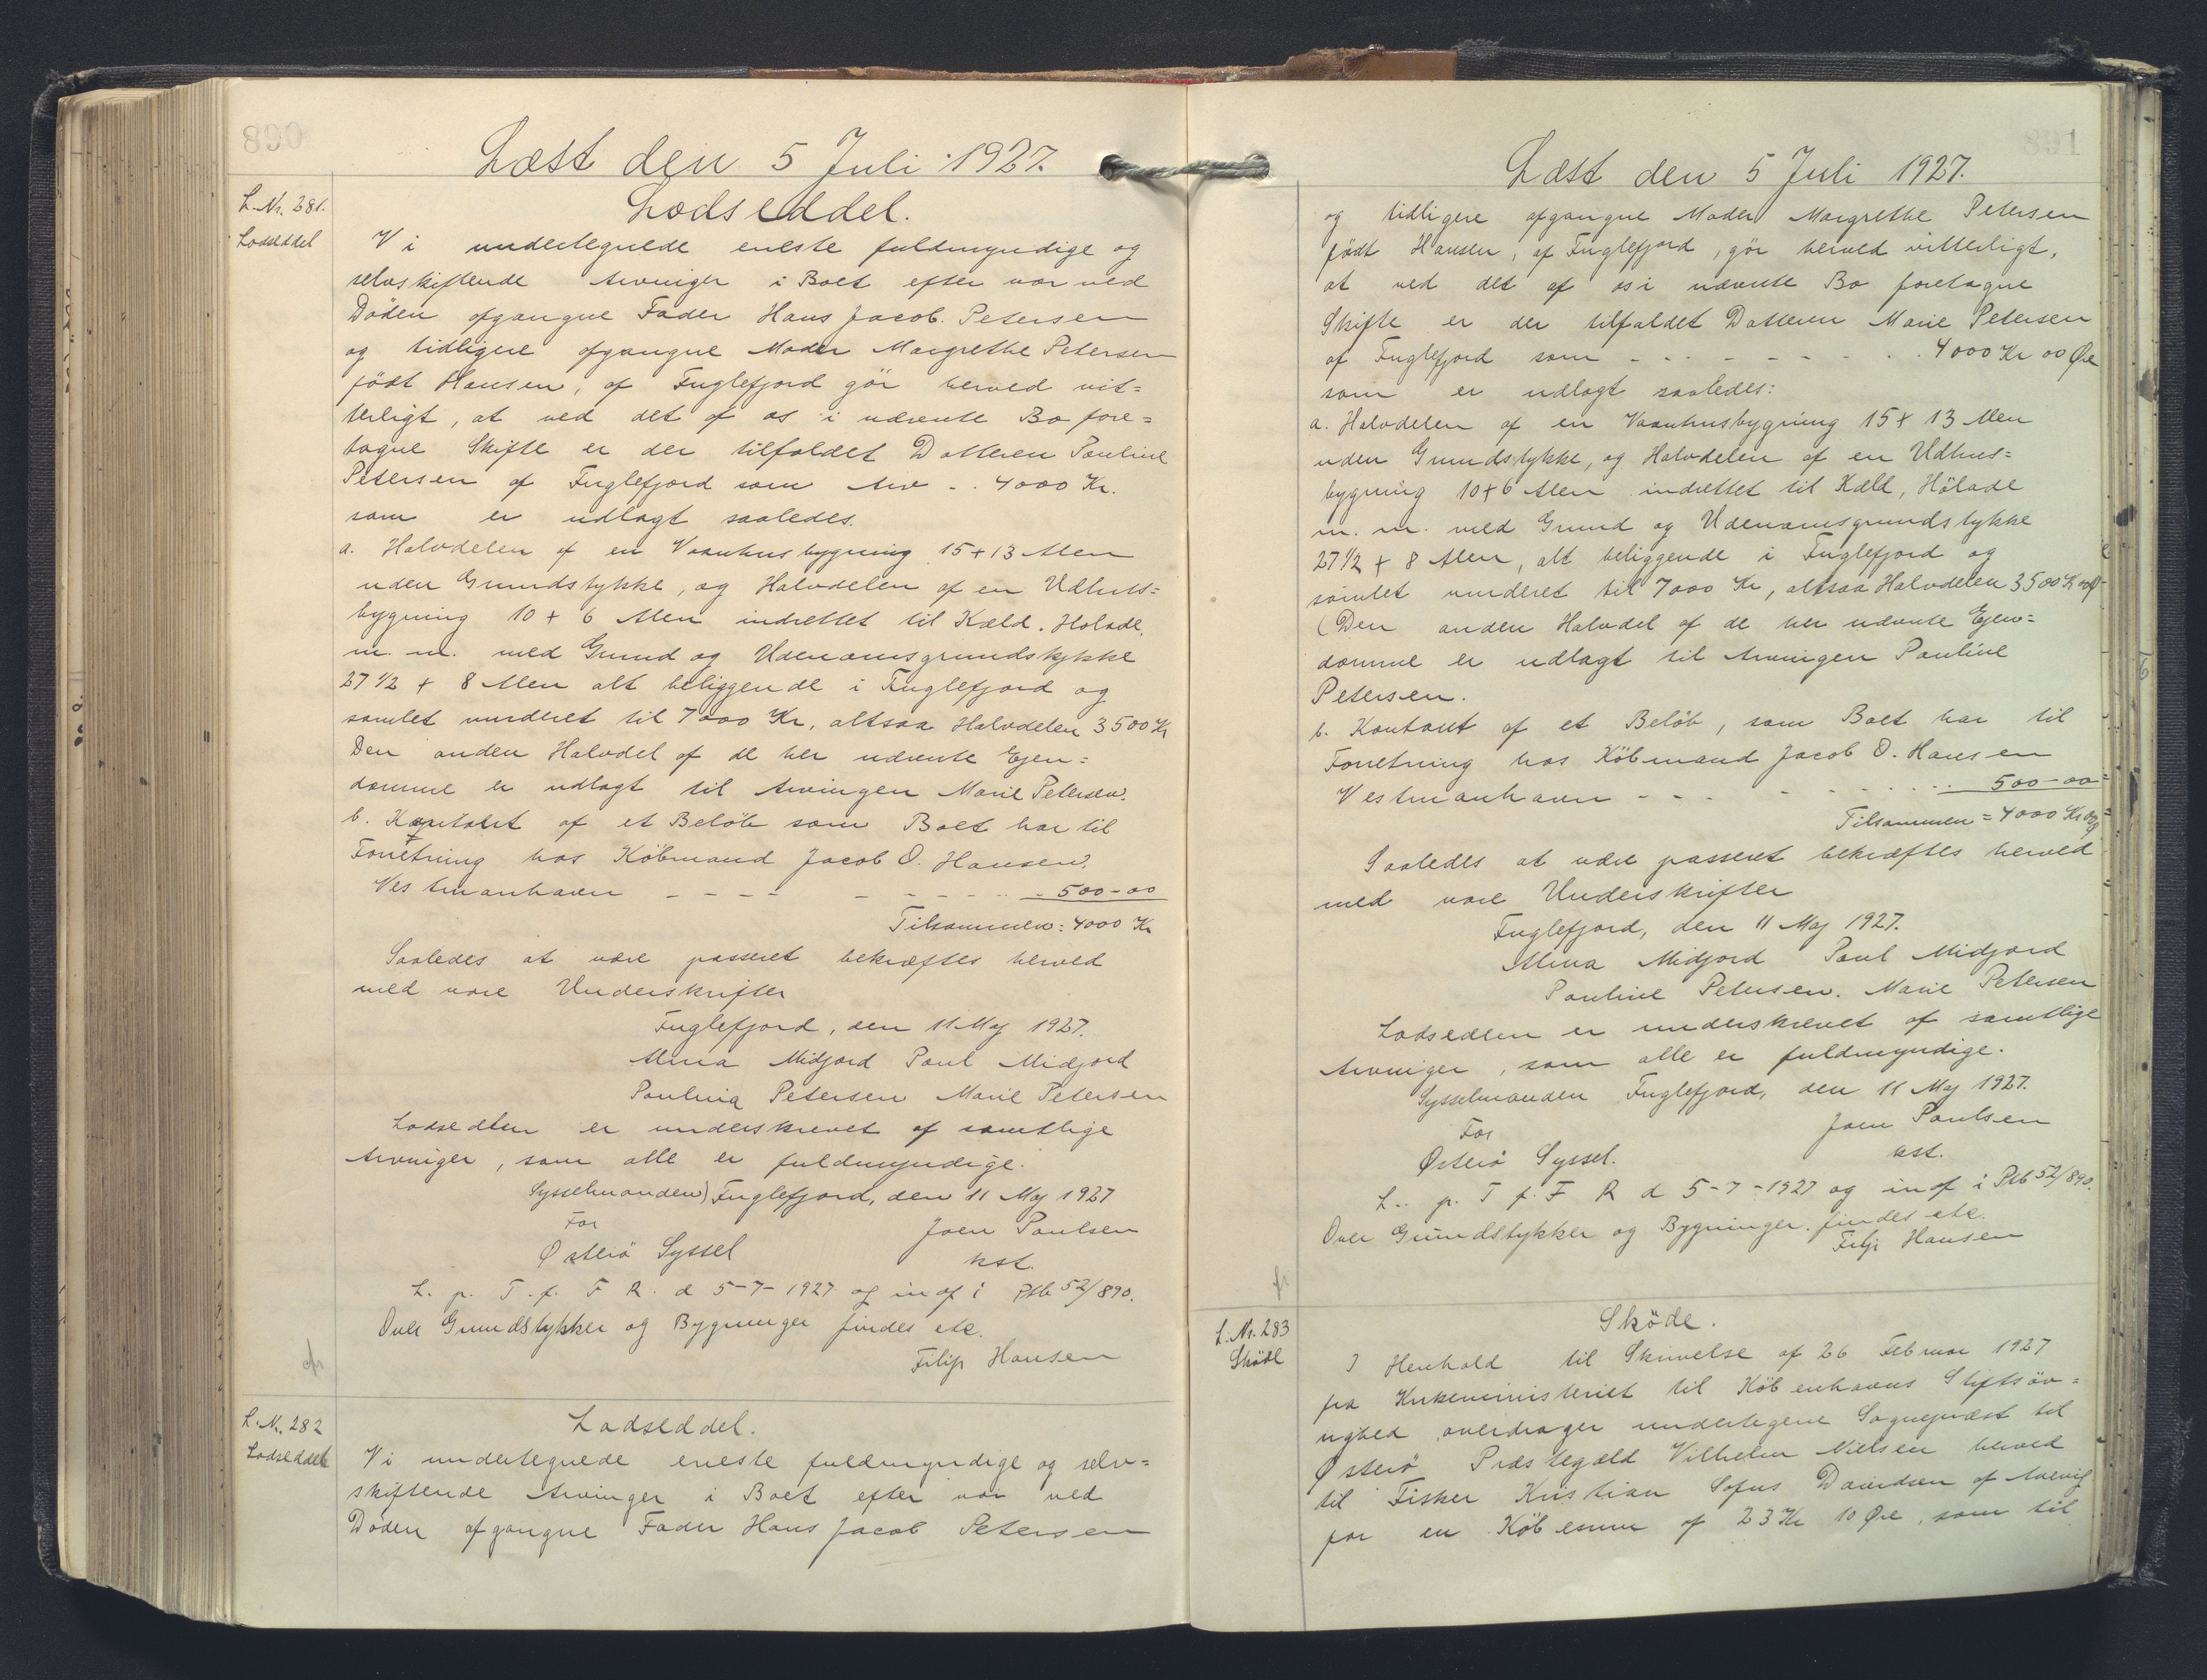 890
Læst den 5 Juli 1927.
L. Nr. 281.
Lodseddel
Lodseddel.
Vi undertegnede eneste fuldmyndige og
selvskiftende Arvinger i Boet efter vor ved
Döden afgangne Fader Hans Jacob Petersen
og tidligere afgangne Moder Margrethe Petersen
född Hansen, af Fuglefjord gör herved vit=
terligt, at ved det af os i nævnte Bo fore=
tagne Skifte er der tilfaldet Datteren Pauline
Petersen af Fuglefjord som Arv - . 4000 Kr.
som er udlagt saaledes.
a. Halvdelen af en Vaanhusbygning 15 + 13 Alen
uden Grundstykke, og Halvdelen af en Udhus=
bygning 10 + 6 Alen indrettet til Kæld. Holade.
m. m. med Grund og Udenomsgrundstykke
27 1/2 + 8 Alen alt beliggende i Fuglefjord og
samlet vurderet til 7000 Kr, altsaa Halvdelen 3500 Kr
Den anden Halvdel af de her nævnte Ejen=
domme er udlagt til Arvingen Marie Petersen.
b. af et Beløb som Boet har til
Forretning hos Köbmand Jacob O. Hansen.
Vestmanhavn - - - - - - - - 500-00
Tilsammen: 4000 Kr
Saaledes at være passeret bekræftes herved
med vore Underskrifter
Fuglefjord, den 11 Maj 1927.
Alma Midjord Poul Midjord
Paulina Petersen Marie Petersen
Lodsedlen er underskrevet af samtlige
Arvinger, som alle er fuldmyndige.
Sysselmanden) Fuglefjord, den 11 Maj 1927
For
Østerö Syssel
Joen Poulsen
kst.
L. p. T. f. F R. d 5-7-1927 og indf i Ptb 52/890.
Over Grundstykker og Bygninger findes etc.
Filip Hansen
L. Nr. 282
Lodseddel
Lodseddel.
Vi undertegnede eneste fuldmyndige og selv=
skiftende Arvinger i Boet efter vor ved
Döden afgangne Fader Hans Jacob Petersen
891
Læst den 5 Juli 1927.
og tidligere afgangne Moder Margrethe Petersen
född Hansen, af Fuglefjord, gör herved vitterligt,
at ved det af os i nævnte Bo foretagne
Skifte er der tilfaldet Datteren Marie Petersen
af Fuglefjord som - - - - - - - - 4000 Kr 00 Øre
som er udlagt saaledes:
a. Halvdelen af en Vaanhusbygning 15 + 13 Alen
uden Grundstykke, og Halvdelen af en Udhus=
bygning 10 + 6 Alen indrettet til Kæld, Hölade
m. m. med Grund og Udenomsgrundstykke
27 1/2 + 8 Alen, alt beliggende i Fuglefjord og
samlet vurderet til 7000 Kr, altsaa Halvdelen 3500 Kr 00 Ø
(Den anden Halvdel af de her nævnte Ejen=
domme er udlagt til Arvingen Pauline
Petersen.
b. Kontant af et Belöb, som Boet har til
Forretning hos Köbmand Jacob O. Hansen
Vestmanhavn - - - - - - - - 500-00
Tilsammen = 4000 Kr 00 Ø
Saaledes at være passeret bekræftes herved
med vore Underskrifter
Fuglefjord, den 11 Maj 1927.
Alma Midjord Poul Midjord
Pauline Petersen. Marie Petersen
Lodsedlen er underskrevet af samtlige
Arvinger, som alle er fuldmyndige.
Sysselmanden Fuglefjord, den 11 Maj 1927.
For
Østerö Syssel.
Joen Poulsen
kst.
L. p. T f. F R d 5-7-1927 og indf i Ptb 52/890.
Over Grundstykker og Bygninger findes etc.
Filip Hansen
L. Nr. 283
Sködl
Sköde.
I Henhold til Skrivelse af 26 Februar 1927
fra Kirkeministeriet til Köbenhavns Stiftsöv=
righed overdrager undertegnede Sognepræst til
Østerö Præstegæld Vilhelm Nielsen herved
til Fisker Kristian Sofus Davidsen af Arevig
for en Köbesum af 23 Kr 10 Øre, som til